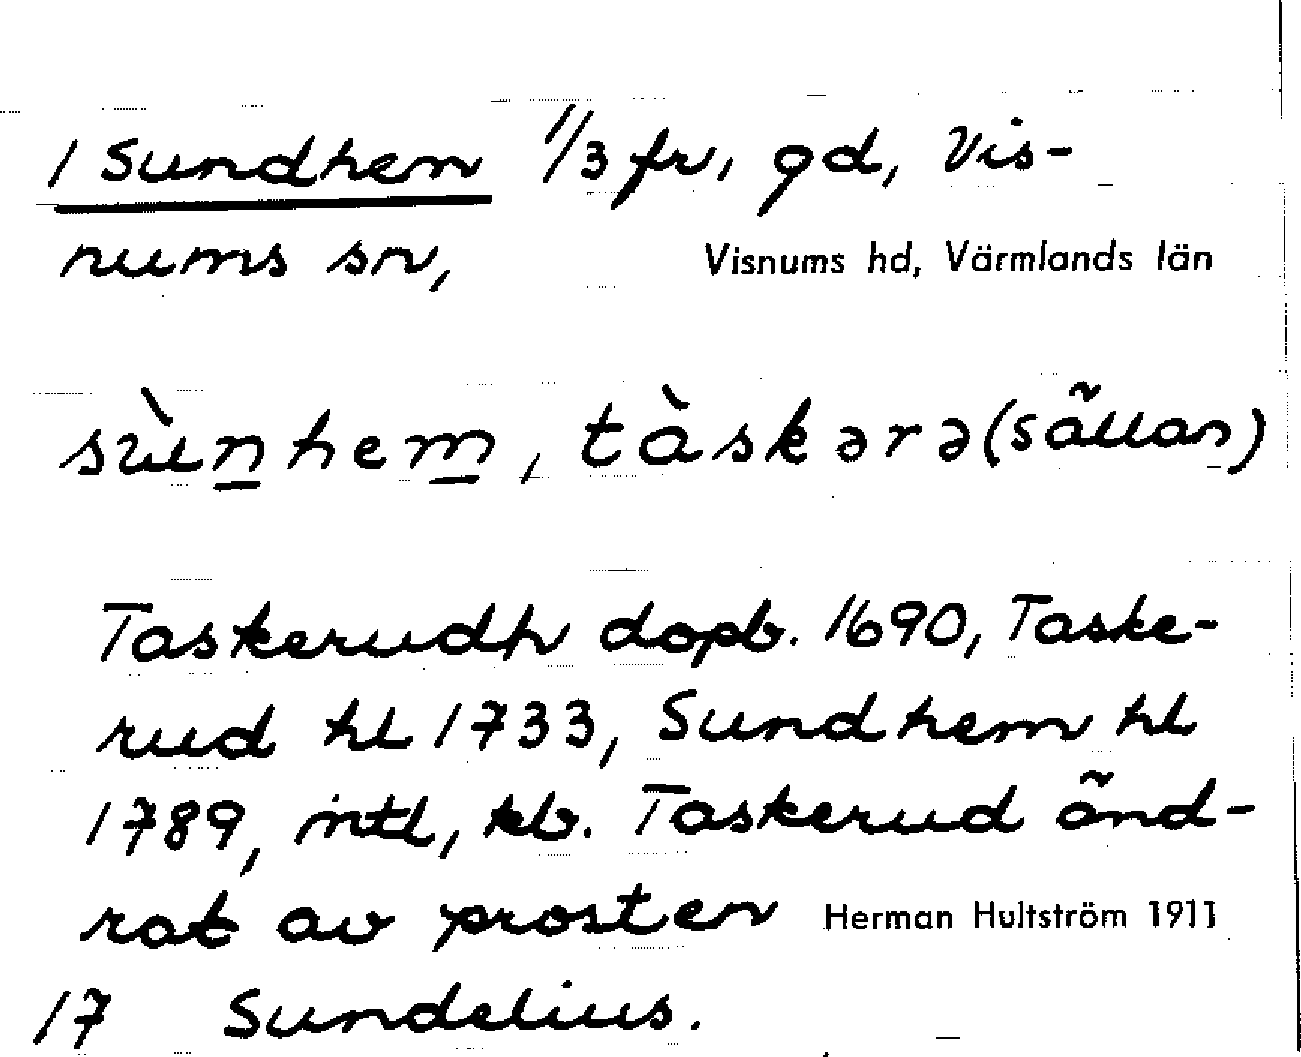 1 Sundhem 1/3 fr, gd, Vis-
nums sn, Visnums hd, Värmlands län
sùn̲hem̲, tàskərə (sällan)
Taskerudh dopb. 1690, Taske-
rud hl 1733, Sundhem hl
1789, mtl, kb. Taskerud änd-
rat av prosten Herman Hultström 1911
17 Sundelius.